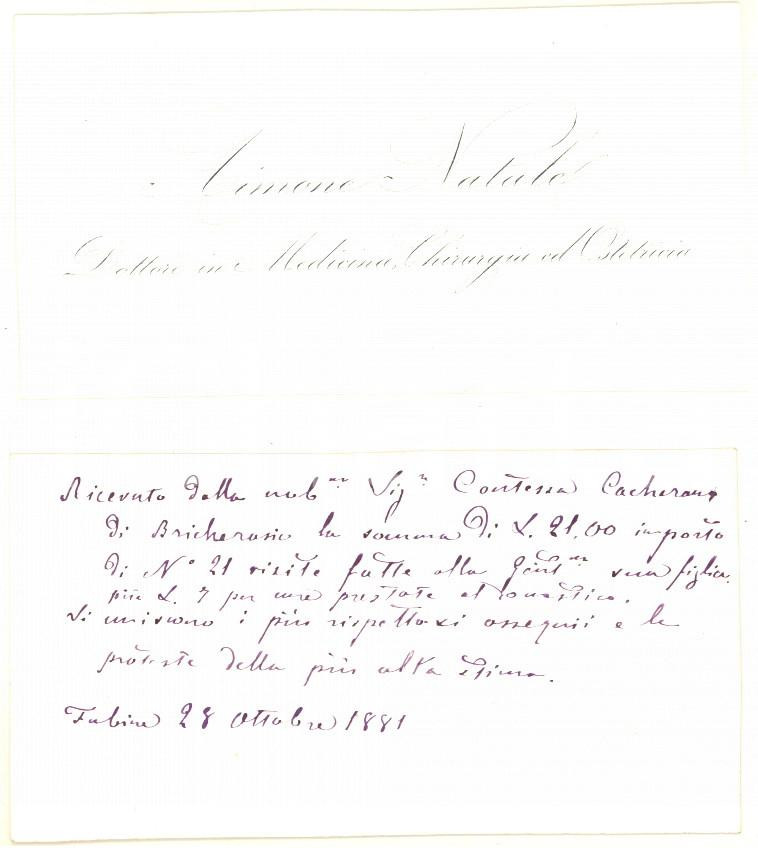 Simone Natale
Dottore in Medicina, Chirurgia ed Ostetricia
Ricevuto dalla nob.ma Sig.ra Contessa Cacherano
di Bricherasio la somma di L. 21,00 importo
di N° 21 visite fatte alla Gent.ma sua figlia.
più L. 7 per cure prestate al domestico.
Si uniscono i più rispettosi ossequii e le
proteste della più alta stima.
Fubine 28 Ottobre 1881